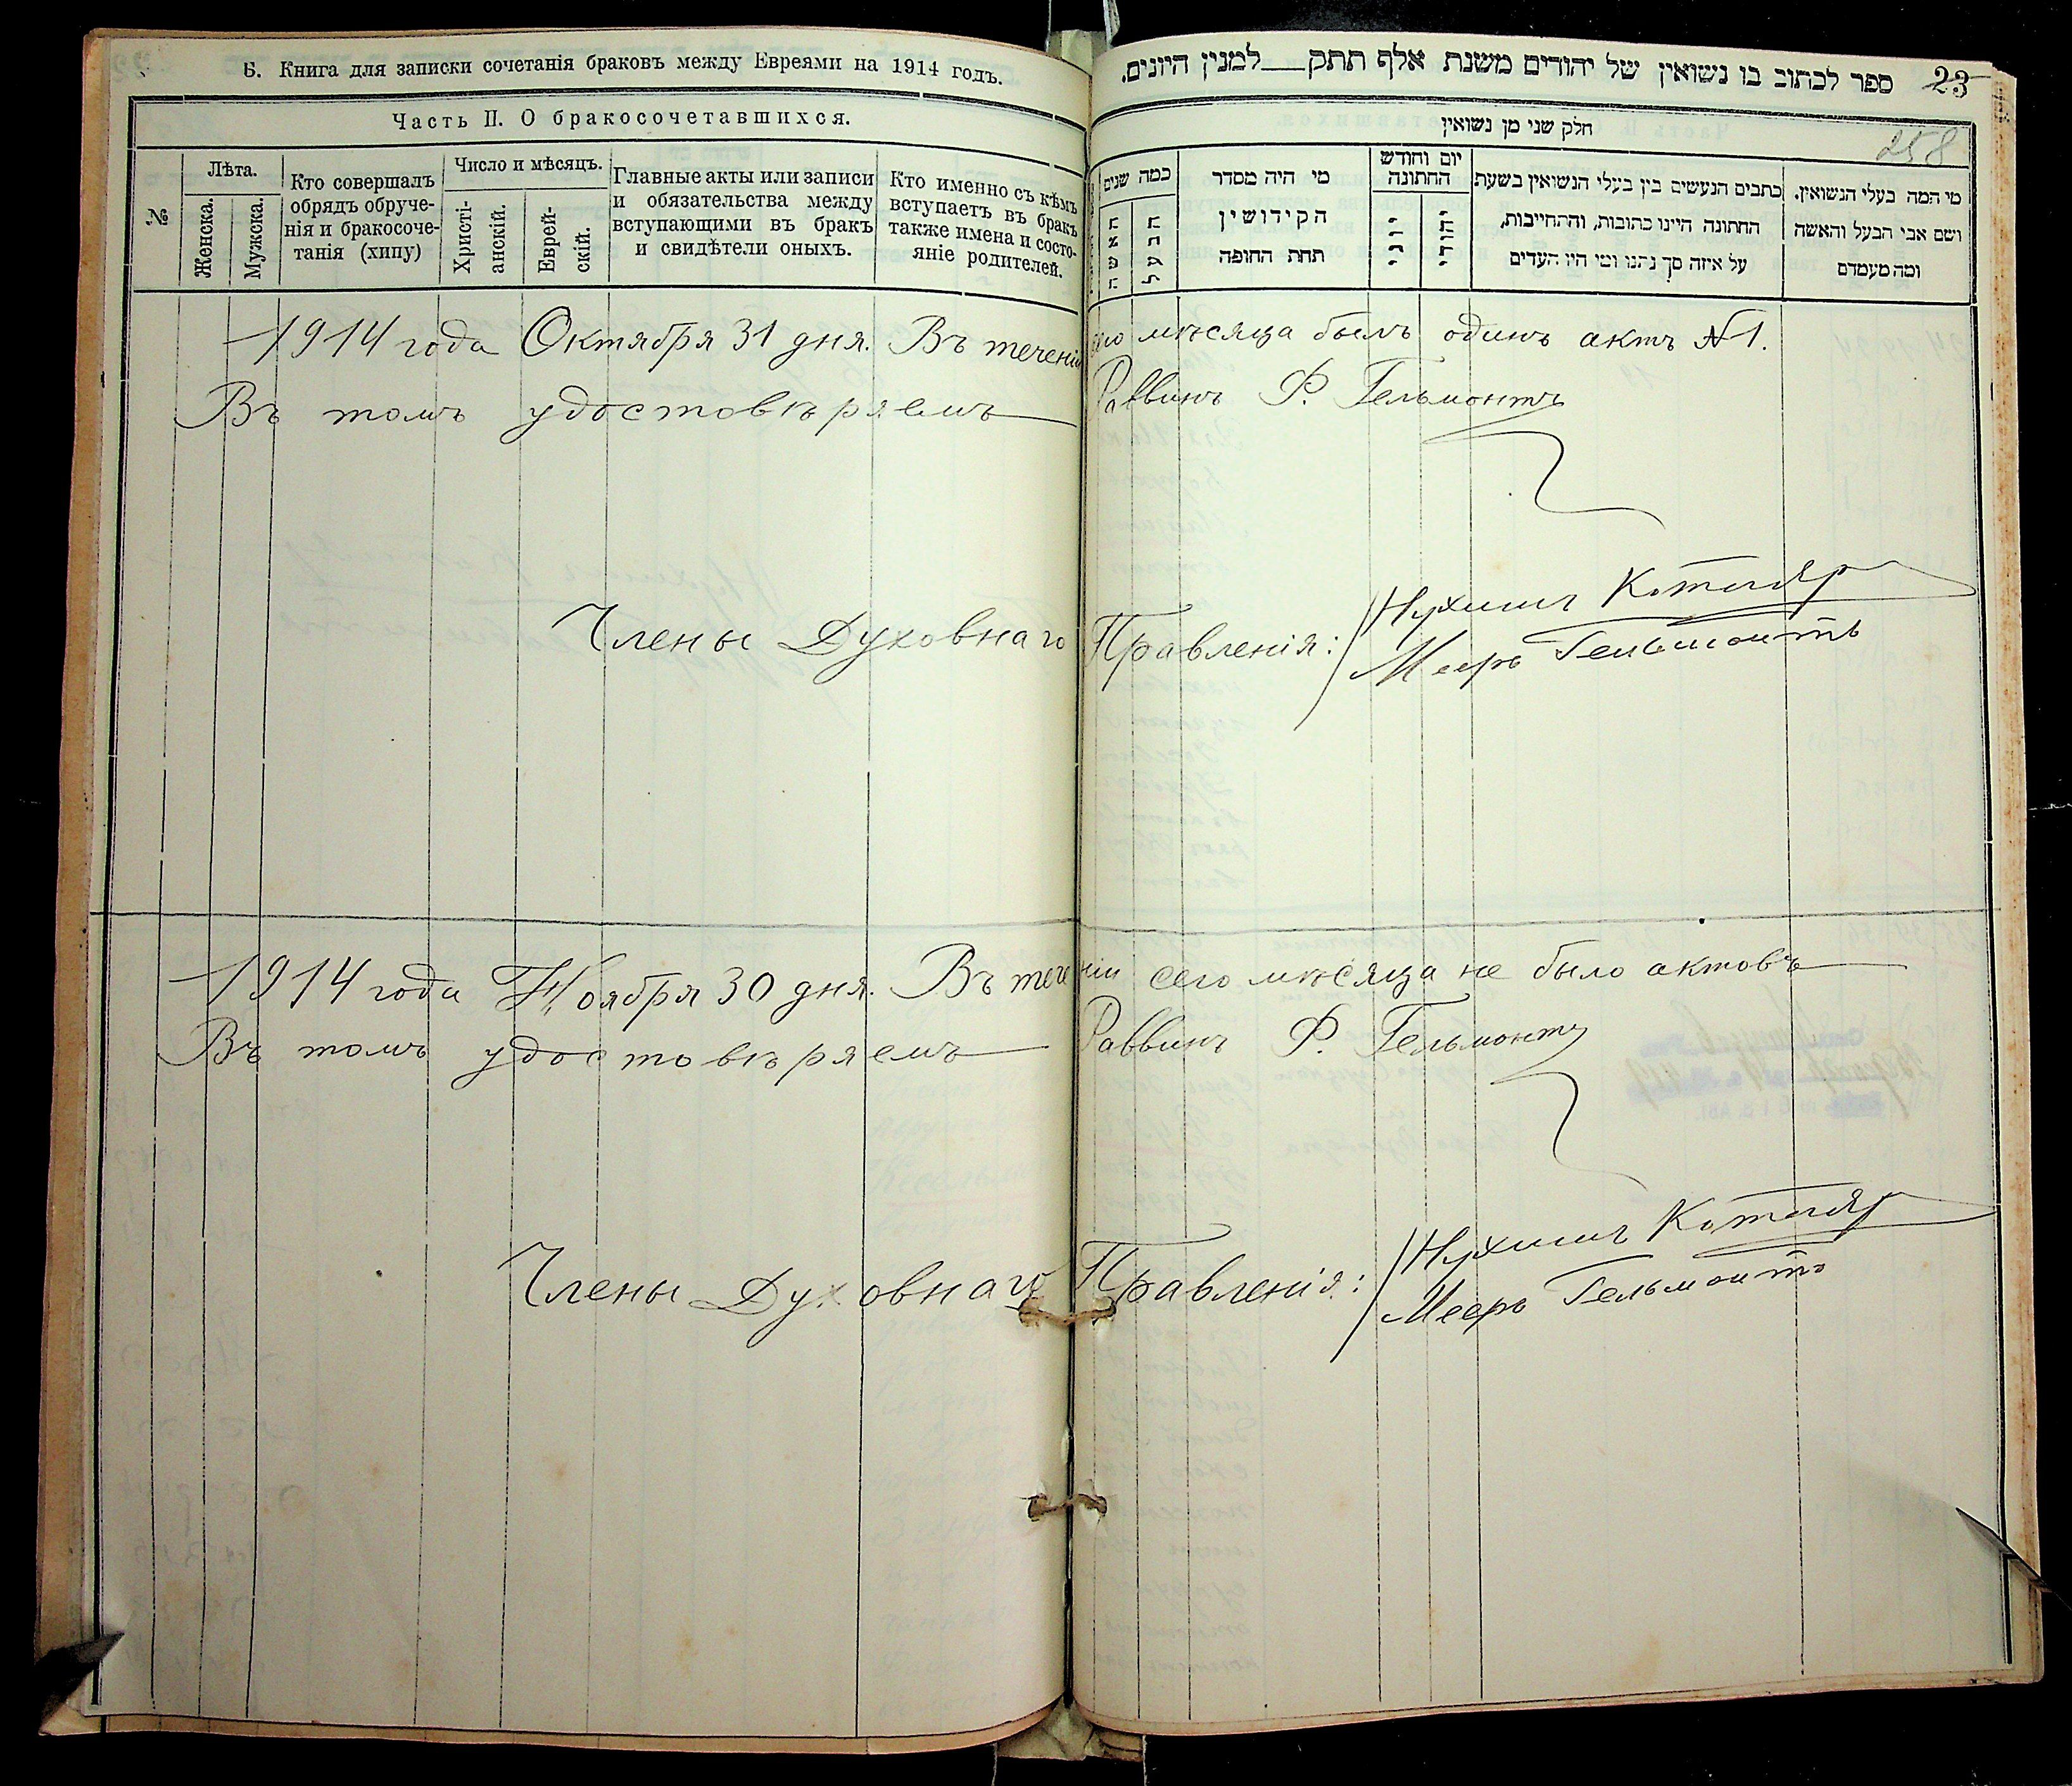 Б. Книга для записки сочетанія браковъ между Евреями на 1914 годъ.
Часть II. О бракосочетавшихся.
№
Лѣта.
Женска.
Мужска.
Кто совершалъ
обрядъ обруче-
нія и бракосоче-
танія (хипу)
Число и мѣсяцъ.
Христі-
анскій.
Еврей-
скій.
Главные акты или записи
и обязательства между
вступающими въ бракъ
и свидѣтели оныхъ.
Кто именно съ кѣмъ
вступаетъ въ бракъ
также имена и состо-
яніе родителей.
ספר לכתוב בו נשואין של יהודים משנת אלף תתק__למנין היונים.
23
חלק שני מן נשואין
258
מי המה בעלי הנשואין.
ושם אבי הבעל והאשה
ומה מעמדם
כתבים הנעשים בין בעלי הנשואין בשעת
החתונה היינו כתובות, וההתחייבות,
על איזה סך נתנו ומי היו העדים
יום וחודש
החתונה
מי היה מסדר
הקידושין
תחת החופה
כמה שנים
1914 года Октября 31 дня. Въ теченіи сего мѣсяца былъ одинъ актъ №1.
Въ томъ удостовѣряемъ Раввинъ Ф. Гельмонтъ
Члены Духовнаго Правленія: Нухимъ Котляр
Мееръ Гельмонтъ
1914 года Ноября 30 дня. Въ теченіи сего мѣсяца не было актовъ
Въ томъ удостовѣряемъ Раввинъ Ф. Гельмонтъ
Члены Духовнаго Правленія: Нухимъ Котляр
Мееръ Гельмонтъ